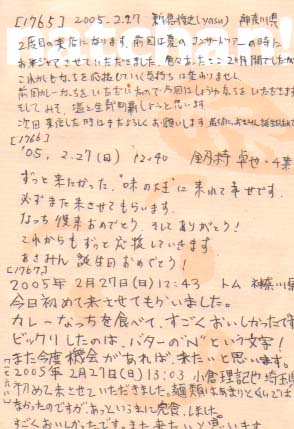 [1765] 2005.2.27 新倉 (yasu) 神奈川県
2度目の来店になります。前回は夏のコンサートツアーの時に
お来させていただきました。色々あった ここ2ヶ月間でしたが
これからもなっちを応援していく気持ちは変わりません。
前回カレーなっちをいただいたので今回はしょうゆなっちをいただきます
そしてみそ、塩と全種制覇しようと思います。
次回来店した時はまたよろしくお願いします。
[1766]
'05. 2.27(日) 12:40 釼持 卓也・千葉
ずっと来たかった"味の大王"に来れて幸せです。
必ずまた来させてもらいます。
なっち復来おめでとう、そしてありがとう!
これからもずっと応援していきます
あさみん 誕生日おめでとう!
[1767]
2005年2月27日(日)12:43 トム 神奈川県
今日初めて来させてもらいました。
カレーなっちを食べて、すごくおいしかったです
ビックリしたのは、バターの"N"という文字!
また今度機会があれば、来たいと思います。
2005年2月27日(日)13:03 小倉理記 埼玉県
初めて来させていただきました。麺類はあまりとくいでは
なかったのですが、あっというまに完食しました。
すごくおいしかったです。また来たいと思います